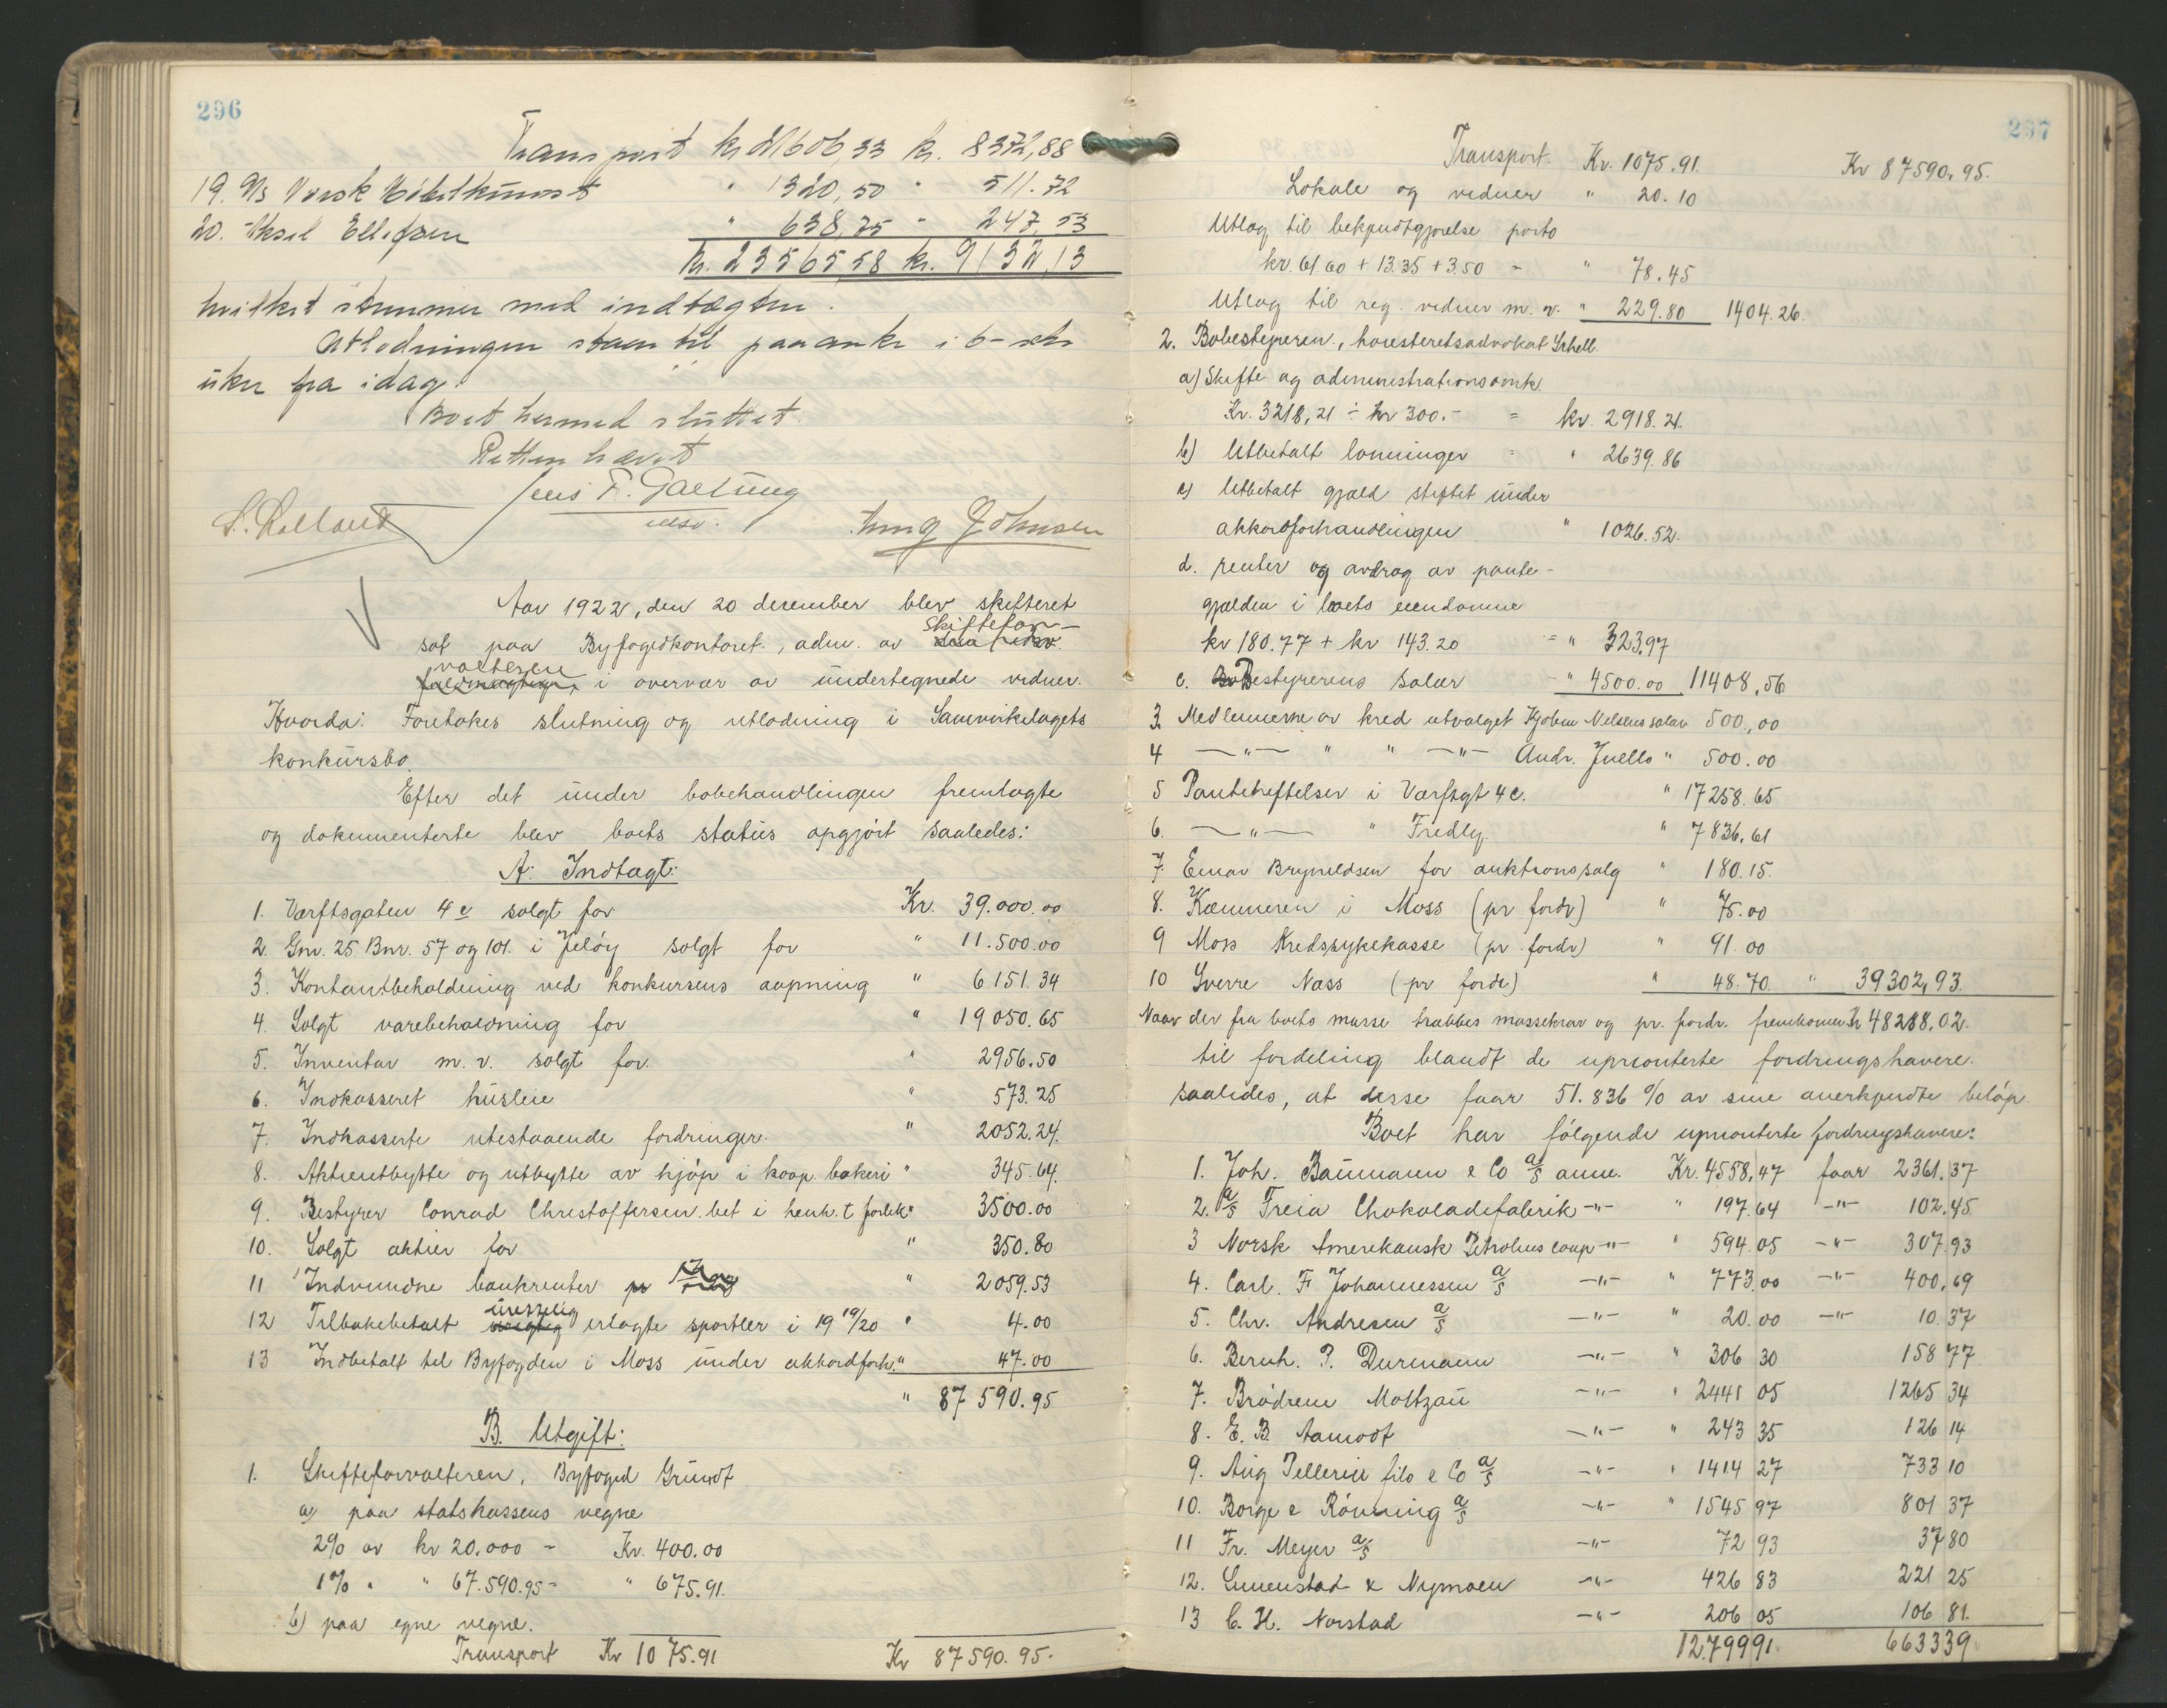 296
Transport kr. 21606,33 kr. 8372,88
19. A/s Norsk Møbelkunst " 1320,50 " 511.72
20. Aksel Ellefsen " 638,75 " 247,53
Kr. 23565,58 kr. 9132,13
hvilket stemmer med indtægten.
Utlodningen staar til paaanke i 6-seks
uker fra idag.
Boet hermed sluttet.
Retten hævet
Jens F. Galtung
S. Rolland
Aar 1922, den 20 desember blev skifteret
Skiftefor-
sat paa Byfogedkontoret, adm. av
valteren
i overvær av undertegnede vidner.
Hvorda: Foretokes slutning og utlodning i Samvirkelagets
konkursbo.
Efter det under bobehandlingen fremlagte
og dokumenterte blev boets status opgjört saaledes:
A: Indtægt:
1. Værftsgaten 4 c solgt for Kr. 39.000.00
2. Gnr. 25 Bnr. 57 og 101. i Jelöy solgt for " 11.500.00
3. Kontantbeholdning ved konkursens aapning " 6151.34
4. Solgt varebeholdning for " 19050.65
5. Inventar m.v. solgt for " 2956.50
6. Indkasseret husleie " 573.25
7. Indkasserte utestaaende fordringer. " 2052.24.
8. Aktieutbytte og utbytte av kjöp i koop. bakeri " 345.64.
9. Bestyrer Conrad Christoffersen bet i henh. t. forlik " 3500.00
10. Solgt aktier for " 350.80
11 Indvundne bankrenter " 2059.53
urettelig
12 Tilbakebetalt erlagte sportler i 19 19/20 " 4.00
13 Indbetalt til Byfogden i Moss under akkordforh. " 47.00
" 87590.95
B. Utgift:
1. Skifteforvalteren, Byfoged Gründt
a) paa statskassens vegne
2% av kr 20.000 - Kr. 400.00
1% " " 67.590.95- " 675.91.
b) paa egne vegne.
Transport Kr 1075.91 Kr 87590.95.
297
Transport. Kr. 1075.91. Kr 87590.95.
Lokale og vidner " 20.10
Utlæg til bekjendtgjörelse porto
kr. 61.60 + 13.35 + 3.50 = " 78.45
Utlæg til reg. vidner m.v. " 229.80 1404.26.
2. Bobestyreren, höiesteretsadvokat Schell.
a) Skifte og administrationsomk.
Kr. 3218,21 ÷ kr 300.- = kr. 2918.21.
b) Utbetalt lønninger = " 2639.86
c) Utbetalt gjæld stiftet under
akkordforhandlingen " 1026.52.
d. renter og avdrag av pante-
gjælden i boets eiendomme
kr 180.77 + kr 143.20 = " 323.97
e. Bestyrerens salær - " 4500.00 11408,56
3. Medlemmerne av kred utvalget Kjöbm Nielsens salær 500,00
4 —"— " " —"— Andr. Juells " 500.00
5 Pantehæftelser i Værftsgt 4c. " 17258.65
6. —"— " Fredly. " 7836.61
7. Einar Bryneldsen for auktionssalg " 180.15.
8. Kæmneren i Moss (pr fordr) " 75.00
9 Moss Kredssykekasse (pr. fordr) " 91.00
10 Sverre Næss (pr fordr) " 48.70. " 39302,93.
Naar der fra boets masse trækkes massekrav og pr. fordr. fremkommer Kr 48288.02.
til fordeling blandt de uprioriterte fordringshavere.
saaledes, at disse faar 51.836 % av sine anerkjendte belöp.
Boet har fölgende uprioriterte fordringshavere:
1. Joh. Baumann & Co a/s anm. Kr. 4558,47 faar 2361.37
2. a/s Freia Chokoladefabrik -"- " 197.64 -"- 102.45
3 Norsk Amerikansk Petroleus comp -"- " 594.05 -"- 307.93
4. Carl. F Johannessen a/s -"- " 773.00 -"- 400.69
5. Chr. Andresen a/s -"- " 20.00 -"- 10.37
6. Bernh. P. Durmann -"- " 306 30 158 77
7. Brödrene Moltzau -"- " 2441 05 1265 34
8. E. B. Aamodt -"- " 243 35 126 14
9. Aug Pellerin fils & Co a/s -"- " 1414 27 733 10
10. Borge & Rönning a/s -"- " 1545 97 801 37
11 Fr. Meyer a/s -"- 72 93 37 80
12. Sunenstad & Nymoen -"- 426 83 221 25
13 C. H. Norstad -"- 206 05 106 81.
12.799 91. 6633 39